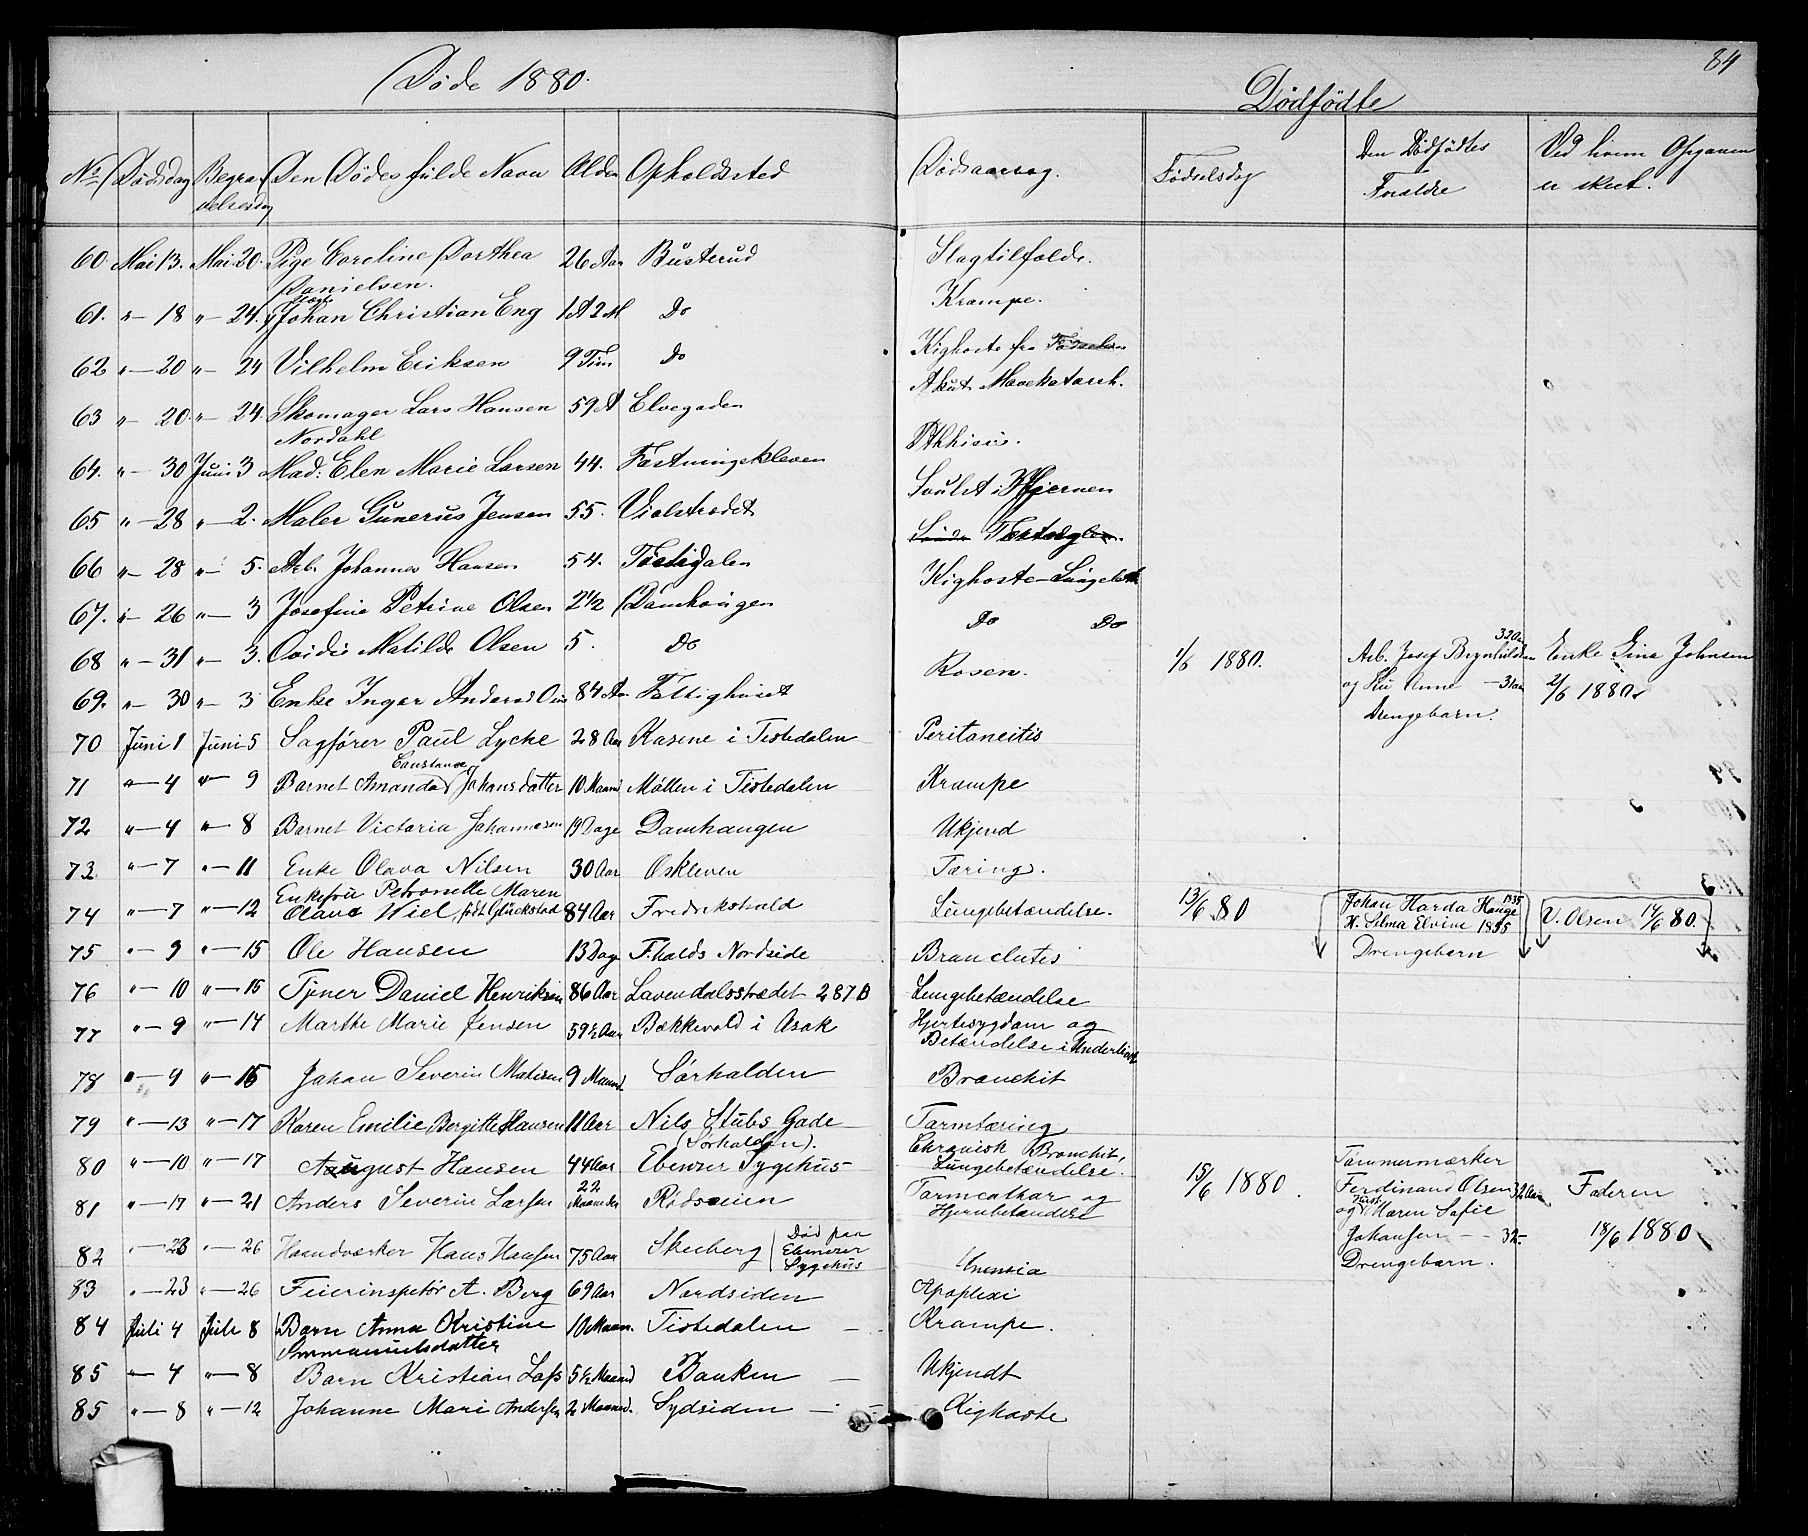 Døde 1880.
84
Dødfødte
No Dødsdag Begravelsesdag Den Dødes fulde Navn Alder Opholdssted Dødsaarsag. Fødselsdag Den Dødfødtes Foraldre Ved hvem Opgaven er skeet.
60. Mai 13. Mai 20. Pige Caroline Dorthea 26 Aar Busterud Slagtilfælde.
Danielsen.
61. " — 18 " — 24. Johan Christian Eng 1 A 2 M Do Krampe.
62 " — 20 " — 24 Vilhelm Eriksen 9 Tim Do Kighoste fra Fødselen
63 " — 20. " — 24. Skomager Lars Hansen 59 A Elvegaden Akut Mavekatarrh.
Nordahl
64. " — 30 Juni 3 Mad: Elen Marie Larsen 44. Fæstningskleven Phthisis.
65 " — 28 " — 2. Maler Gunerus Jensen 55. Vialstrædet Svulst i Hjernen
66 " — 28 " — 5. Arb. Johannes Hansen 54. Tistedalen
67. " — 26 " — 3 Josefine Petrine Olsen 2 1/2 Damhaugen Kighoste — Lungebet
68 " — 31 " — 3. Ovidie Matilde Olsen 5. Do Do Do
69. " — 30 " — 3 Enke Inger Andersd 84 Aar Fattighuset Rosen.
1/6 1880. Arb. Josef Brynhildsen 32 Aar
og Hu Anne — 31 aar
Drengebarn.
Enke Lina Johnsen
2/6 1880.
70 Juni 1 Juni 5 Sagfører Paul Lycke 28 Aar Kasene i Tistedalen Peritoneitis
Constance
71 " — 4 " — 9 Barnet Amanda Johansdatter 10 Maand Møllen i Tistedalen Krampe
72 " — 4 " — 8 Barnet Victoria Johannesen 19 Dage Damhaugen Ukjend
73. " — 7 " — 11 Enke Olava Nilsen 30 Aar Oskleven Tæring.
Enkefru Petronelle Maren
74 " — 7 " — 12 Olava Wiel født Glückstad 84 Aar Fredrikshald Lungebetændelse.
13/6 80 Johan Harda Hauge 1835
H. Selma Elvine 1855
Drengebarn
V. Olsen 14/6 80.
75 " — 9 " — 15 Ole Hansen 13 Dage F.halds Nordside Bronchitis
76 " — 10 " — 15 Tjner Daniel Henriksen 86 Aar Lavendalsstrædet 287 B Lungebetændelse
77 " — 9 " — 14 Marthe Marie Jensen 59 1/2 Aar Bækkevold i Asak Hjertesygdom og
Betændelse i Underlivet
78 " — 9 " — 15 Johan Severin Matisen 9 Maand Sørhalden Bronchit
79 " — 13 " — 17 Karen Emilie Bergitte Hansen 11 Aar Nils Stubs Gade Tarmtæring
(Sørhalden).
80 " — 10 " — 17 August Hansen 44 Aar Ebenezer Sygehus Chronisk Bronchit,
Lungebetændelse.
81 " — 17 " — 21 Anders Severin Larsen 22 Maaneder Rødsveien Tarmcathar og
Hjernbetændelse
15/6 1880. Tømmermærker
Ferdinand Olsen 32 Aar
og Hust. Maren Sofie
Johansen — 32 —
Drengebarn.
Faderen
18/6 1880
82 " — 23 " — 26 Haandværker Hans Hansen 75 Aar Skeeberg Død paa
Ebenezer
Sygehus
83 " — 23 " — 26 Feierinspetør A. Berg 69 Aar Nordsiden Apoplexi
84 Juli 4 Juli 8 Barn Anna Kristine 10 Maan. Tistedalen — Krampe.
Emmanuelsdatter
85 " — 4 " — 8 Barn Kristian Lass 5 1/2 Maand Banken — Ukjendt
85 " — 8 " — 12 Johanne Mari Andersen 2 Maaned. Sydsiden — Kighoste